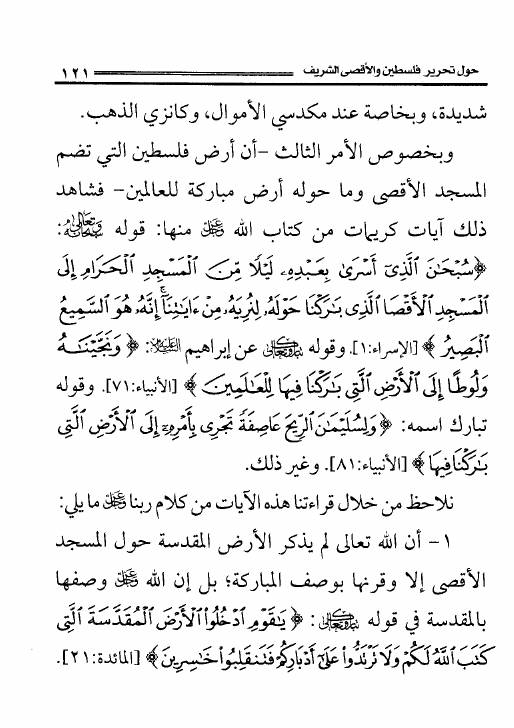 حول تحرير فلسطين والأقصى الشريف ١٢١
شديدة، وبخاصة عند مكدسي الأموال، وكانزي الذهب.
وبخصوص الأمر الثالث -أن أرض فلسطين التي تضم
المسجد الأقصى وما حوله أرض مباركة للعالمين- فشاهد
ذلك آيات كريمات من كتاب الله عز وجل منها: قوله سبحانه وتعالى:
﴿سُبْحَٰنَ ٱلَّذِىٓ أَسْرَىٰ بِعَبْدِهِۦ لَيْلًا مِّنَ ٱلْمَسْجِدِ ٱلْحَرَامِ إِلَى
ٱلْمَسْجِدِ ٱلْأَقْصَا ٱلَّذِى بَٰرَكْنَا حَوْلَهُۥ لِنُرِيَهُۥ مِنْ ءَايَٰتِنَآ ۚ إِنَّهُۥ هُوَ ٱلسَّمِيعُ
ٱلْبَصِيرُ﴾ [الإسراء:١]. وقوله تبارك وتعالى عن إبراهيم عليه السلام: ﴿وَنَجَّيْنَٰهُ
وَلُوطًا إِلَى ٱلْأَرْضِ ٱلَّتِى بَٰرَكْنَا فِيهَا لِلْعَٰلَمِينَ﴾ [الأنبياء:٧١]. وقوله
تبارك اسمه: ﴿وَلِسُلَيْمَٰنَ ٱلرِّيحَ عَاصِفَةً تَجْرِى بِأَمْرِهِۦٓ إِلَى ٱلْأَرْضِ ٱلَّتِى
بَٰرَكْنَا فِيهَا﴾ [الأنبياء:٨١]. وغير ذلك.
نلاحظ من خلال قراءتنا هذه الآيات من كلام ربنا عز وجل ما يلي:
١- أن الله تعالى لم يذكر الأرض المقدسة حول المسجد
الأقصى إلا وقرنها بوصف المباركة؛ بل إن الله عز وجل وصفها
بالمقدسة في قوله تبارك وتعالى: ﴿يَٰقَوْمِ ٱدْخُلُوا۟ ٱلْأَرْضَ ٱلْمُقَدَّسَةَ ٱلَّتِى
كَتَبَ ٱللَّهُ لَكُمْ وَلَا تَرْتَدُّوا۟ عَلَىٰٓ أَدْبَارِكُمْ فَتَنقَلِبُوا۟ خَٰسِرِينَ﴾ [المائدة:٢١].